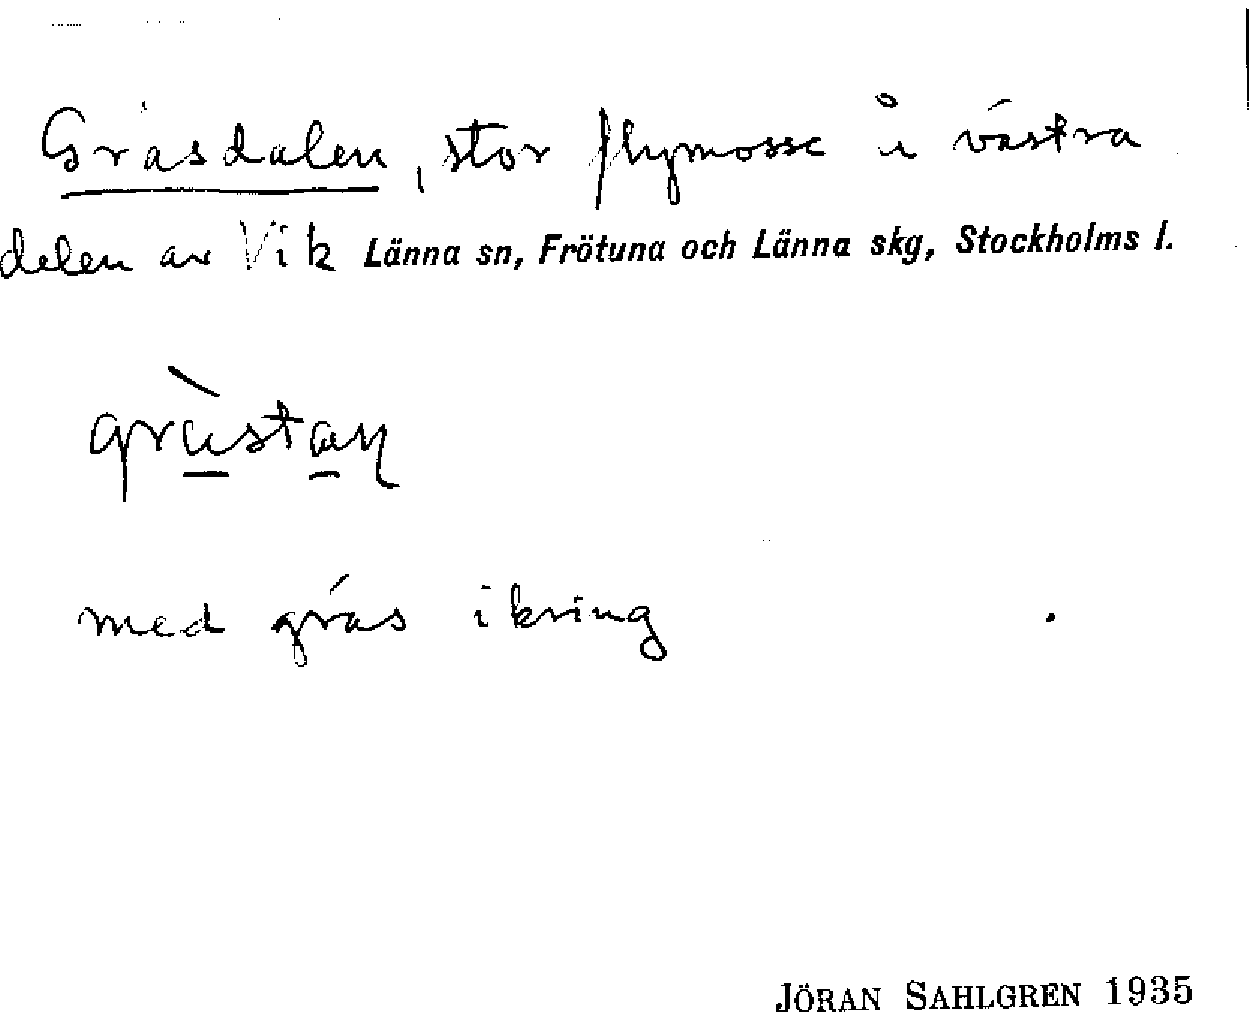 Gräsdalen, stor flymosse i västra
delen av Vik Länna sn, Frötuna och Länna skg, Stockholms l.
med gräs ikring
JÖRAN SAHLGREN 1935